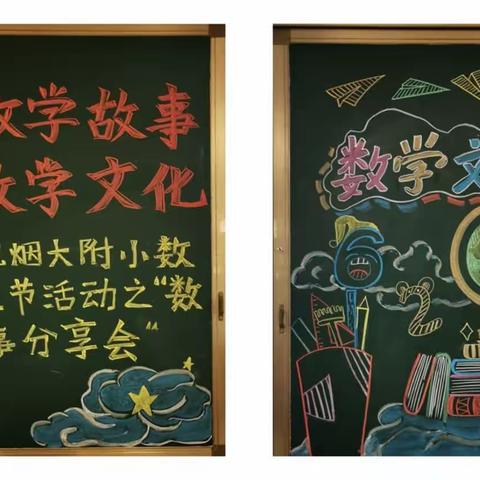 数学故事
数学文化
烟大附小数
节活动之“数
事分享会”
数学文
6
2